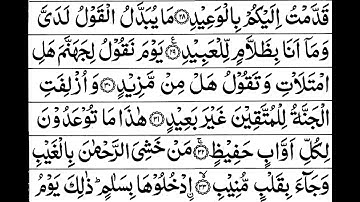 قَدَّمْتُ اِلَيْكُمْ بِالْوَعِيْدِ ﴿۲۸﴾ مَا يُبَدَّلُ الْقَوْلُ لَدَىَّ
وَمَاۤ اَنَا بِظَلَّامٍ لِّلْعَبِيْدِ ﴿۲۹﴾ يَوْمَ نَقُوْلُ لِجَهَنَّمَ هَلِ
امْتَلَاْتِ وَتَقُوْلُ هَلْ مِنْ مَّزِيْدٍ ﴿۳۰﴾ وَاُزْلِفَتِ
الْجَنَّةُ لِلْمُتَّقِيْنَ غَيْرَ بَعِيْدٍ ﴿۳۱﴾ هٰذَا مَا تُوْعَدُوْنَ
لِكُلِّ اَوَّابٍ حَفِيْظٍ ﴿۳۲﴾ مَنْ خَشِىَ الرَّحْمٰنَ بِالْغَيْبِ
وَجَآءَ بِقَلْبٍ مُّنِيْبٍ ﴿۳۳﴾ ادْخُلُوْهَا بِسَلٰمٍ ؕ ذٰلِكَ يَوْمُ